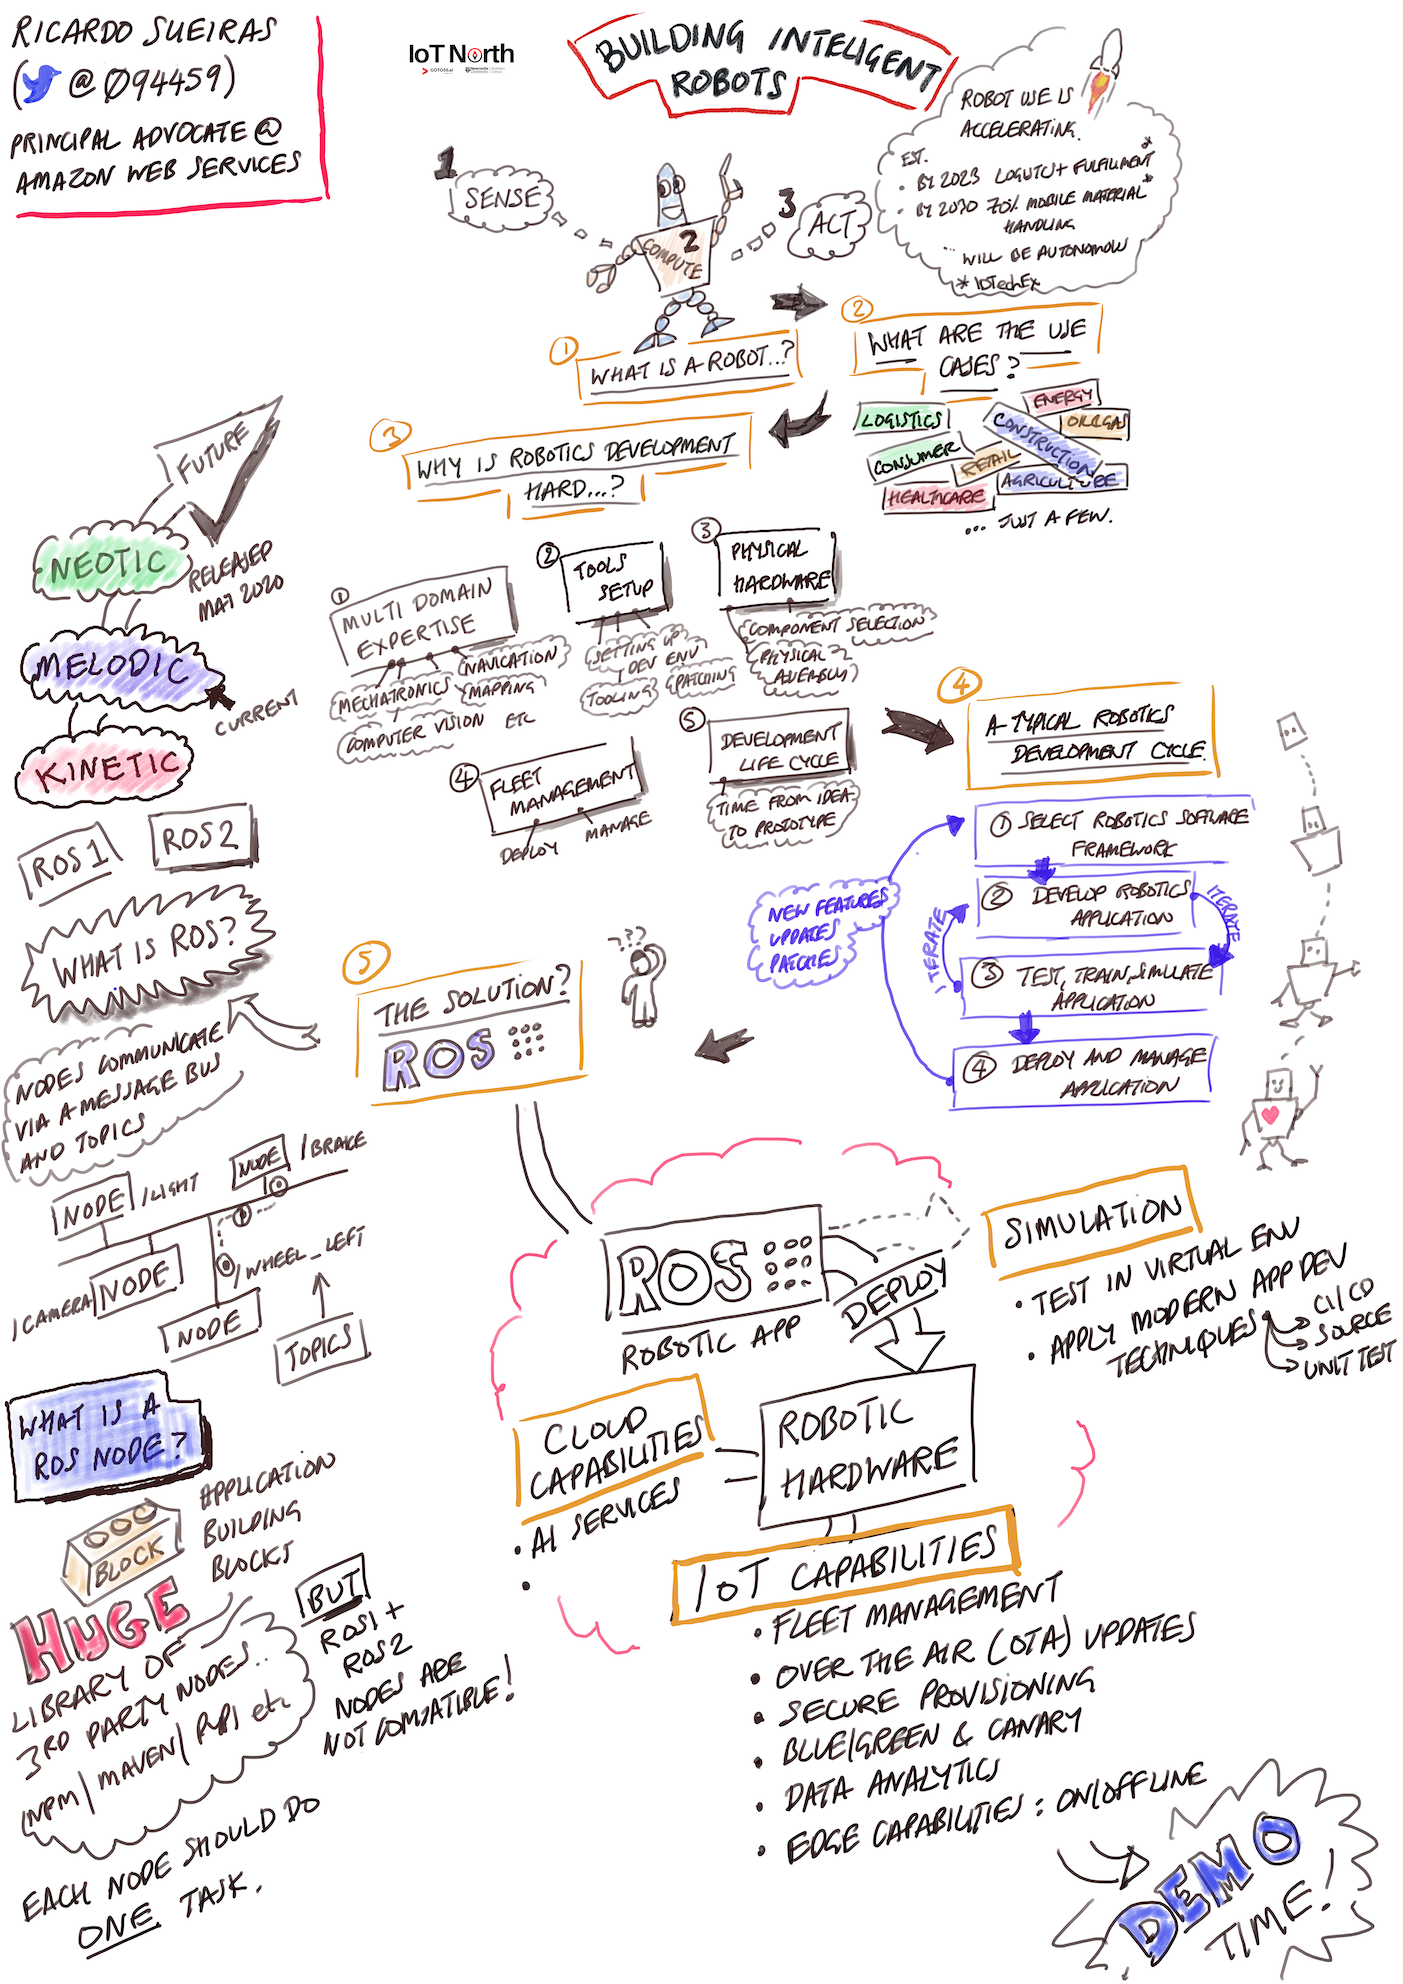 RICARDO SUEIRAS
(@Ø94459)
PRINCIPAL ADVOCATE @
AMAZON WEB SERVICES
IoT North
BUILDING INTELIGENT
ROBOTS
ROBOT USE IS
ACCELERATING.
EST.
• BY 2023 LOGISTICS + FULFILMENT*
• BY 2030 70% MOBILE MATERIAL*
HANDLING
... WILL BE AUTONOMOUS
* IDTechEx
1
SENSE
2
COMPUTE
3
ACT
① WHAT IS A ROBOT..?
② WHAT ARE THE USE
CASES?
LOGISTICS
ENERGY
CONSTRUCTION
OIL&GAS
CONSUMER
RETAIL
AGRICULTURE
HEALTHCARE
... JUST A FEW.
③ WHY IS ROBOTICS DEVELOPMENT
HARD...?
① MULTI DOMAIN
EXPERTISE
NAVIGATION
MECHATRONICS
MAPPING
COMPUTER VISION ETC
② TOOLS
SETUP
SETTING UP
DEV ENV
TOOLING
PATCHING
③ PHYSICAL
HARDWARE
COMPONENT SELECTION
PHYSICAL
ASSEMBLY
④ FLEET
MANAGEMENT
DEPLOY
MANAGE
⑤ DEVELOPMENT
LIFE CYCLE
TIME FROM IDEA
TO PROTOTYPE
④ A TYPICAL ROBOTICS
DEVELOPMENT CYCLE.
① SELECT ROBOTICS SOFTWARE
FRAMEWORK
② DEVELOP ROBOTICS
APPLICATION
ITERATE
ITERATE
③ TEST, TRAIN, SIMULATE
APPLICATION
④ DEPLOY AND MANAGE
APPLICATION
NEW FEATURES
UPDATES
PATCHES
⑤ THE SOLUTION?
ROS
???
FUTURE
NEOTIC
RELEASED
MAY 2020
MELODIC
CURRENT
KINETIC
ROS1
ROS2
WHAT IS ROS?
NODES COMMUNICATE
VIA A MESSAGE BUS
AND TOPICS
NODE /LIGHT
NODE /BRAKE
/CAMERA NODE
/WHEEL_LEFT
NODE
TOPICS
WHAT IS A
ROS NODE?
BLOCK
APPLICATION
BUILDING
BLOCKS
HUGE
LIBRARY OF
3RD PARTY NODES..
(NPM/MAVEN/PyPI etc
BUT
ROS1 +
ROS2
NODES ARE
NOT COMPATIBLE!
EACH NODE SHOULD DO
ONE TASK.
ROS
ROBOTIC APP
DEPLOY
ROBOTIC
HARDWARE
SIMULATION
• TEST IN VIRTUAL ENV
• APPLY MODERN APP DEV
TECHNIQUES
CI/CD
SOURCE
UNIT TEST
CLOUD
CAPABILITIES
• AI SERVICES
•
IoT CAPABILITIES
• FLEET MANAGEMENT
• OVER THE AIR (OTA) UPDATES
• SECURE PROVISIONING
• BLUE/GREEN & CANARY
• DATA ANALYTICS
• EDGE CAPABILITIES : ON/OFFLINE
DEMO
TIME!